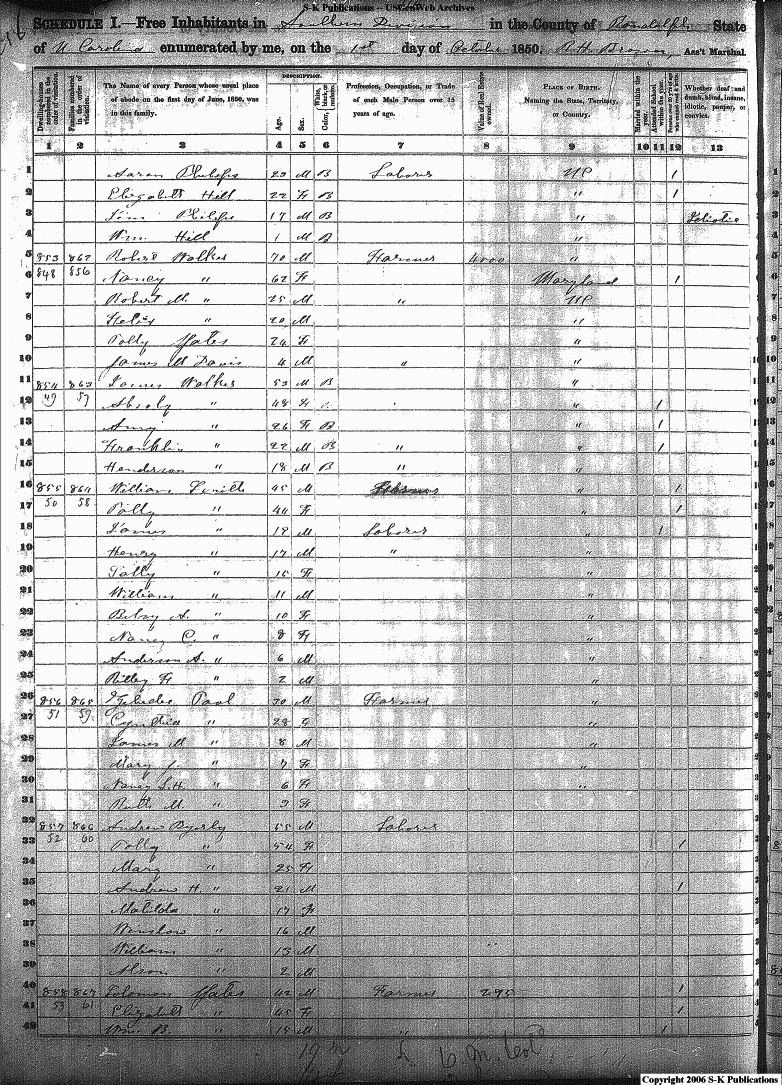 S-K Publications -- USGenWeb Archives
SCHEDULE I.—Free Inhabitants in Southern Division in the County of Randolph State
of N Carolina enumerated by me, on the 1st day of October 1850. Ass't Marshal.
Dwelling-houses numbered in the order of visitation. Families numbered in the order of visitation. The Name of every Person whose usual place of abode on the first day of June, 1850, was in this family. DESCRIPTION. Age. Sex. Color, White, black, or mulatto. Profession, Occupation, or Trade of each Male Person over 15 years of age. Value of Real Estate owned. PLACE OF BIRTH. Naming the State, Territory, or Country. Married within the year. Attended School within the year. Persons over 20 y'rs of age who cannot read & write. Whether deaf and dumb, blind, insane, idiotic, pauper, or convict.
1 2 3 4 5 6 7 8 9 10 11 12 13
1 Philips 23 M B Laborer NC / 1
2 Elizabeth Hill 22 F B " / 2
3 Philips 17 M B " Idiotic 3
4 Wm. Hill 1 M B " 4
5 853 862 Robert Walker 70 M Farmer 4000 " 5
6 848 856 Nancy " 62 F Maryland / 6
7 Robert M. " 25 M " NC 7
8 " 20 M " 8
9 Polly Yates 24 F " 9
10 James M Davis 4 M " " 10
11 854 863 James Walker 53 M B " 11
12 49 57 " 48 F " / 12
13 Amy " 26 F B " / 13
14 Franklin " 22 M B " " / 14
15 Henderson " 18 M B " " 15
16 855 864 William 45 M Farmer " / 16
17 50 58 Polly " 44 F " / 17
18 James " 19 M Laborer " / 18
19 Henry " 17 M " " 19
20 " 15 F " 20
21 William " 11 M " 21
22 Betsy A. " 10 F " 22
23 Nancy C. " 8 F " 23
24 Anderson A. " 6 M " 24
25 " 2 M " 25
26 856 865 Pool 30 M Farmer " 26
27 51 59 Cynthia " 28 F " 27
28 James M " 8 M " 28
29 Mary J. " 7 F " 29
30 Nancy " 6 F " 30
31 Ruth M. " 3 F 31
32 857 866 Andrew Byerly 55 M Laborer 32
33 52 60 Polly " 54 F / 33
34 Mary " 25 F 34
35 Andrew H. " 21 M / 35
36 Matilda " 17 F 36
37 Winslow " 16 M 37
38 William " 13 M 38
39 Alson " 2 M 39
40 858 867 Solomon Yates 42 M Farmer 295 / 40
41 53 61 Elizabeth " 45 F / 41
42 Wm. B. " 15 M " / 42
Copyright 2006 S-K Publications